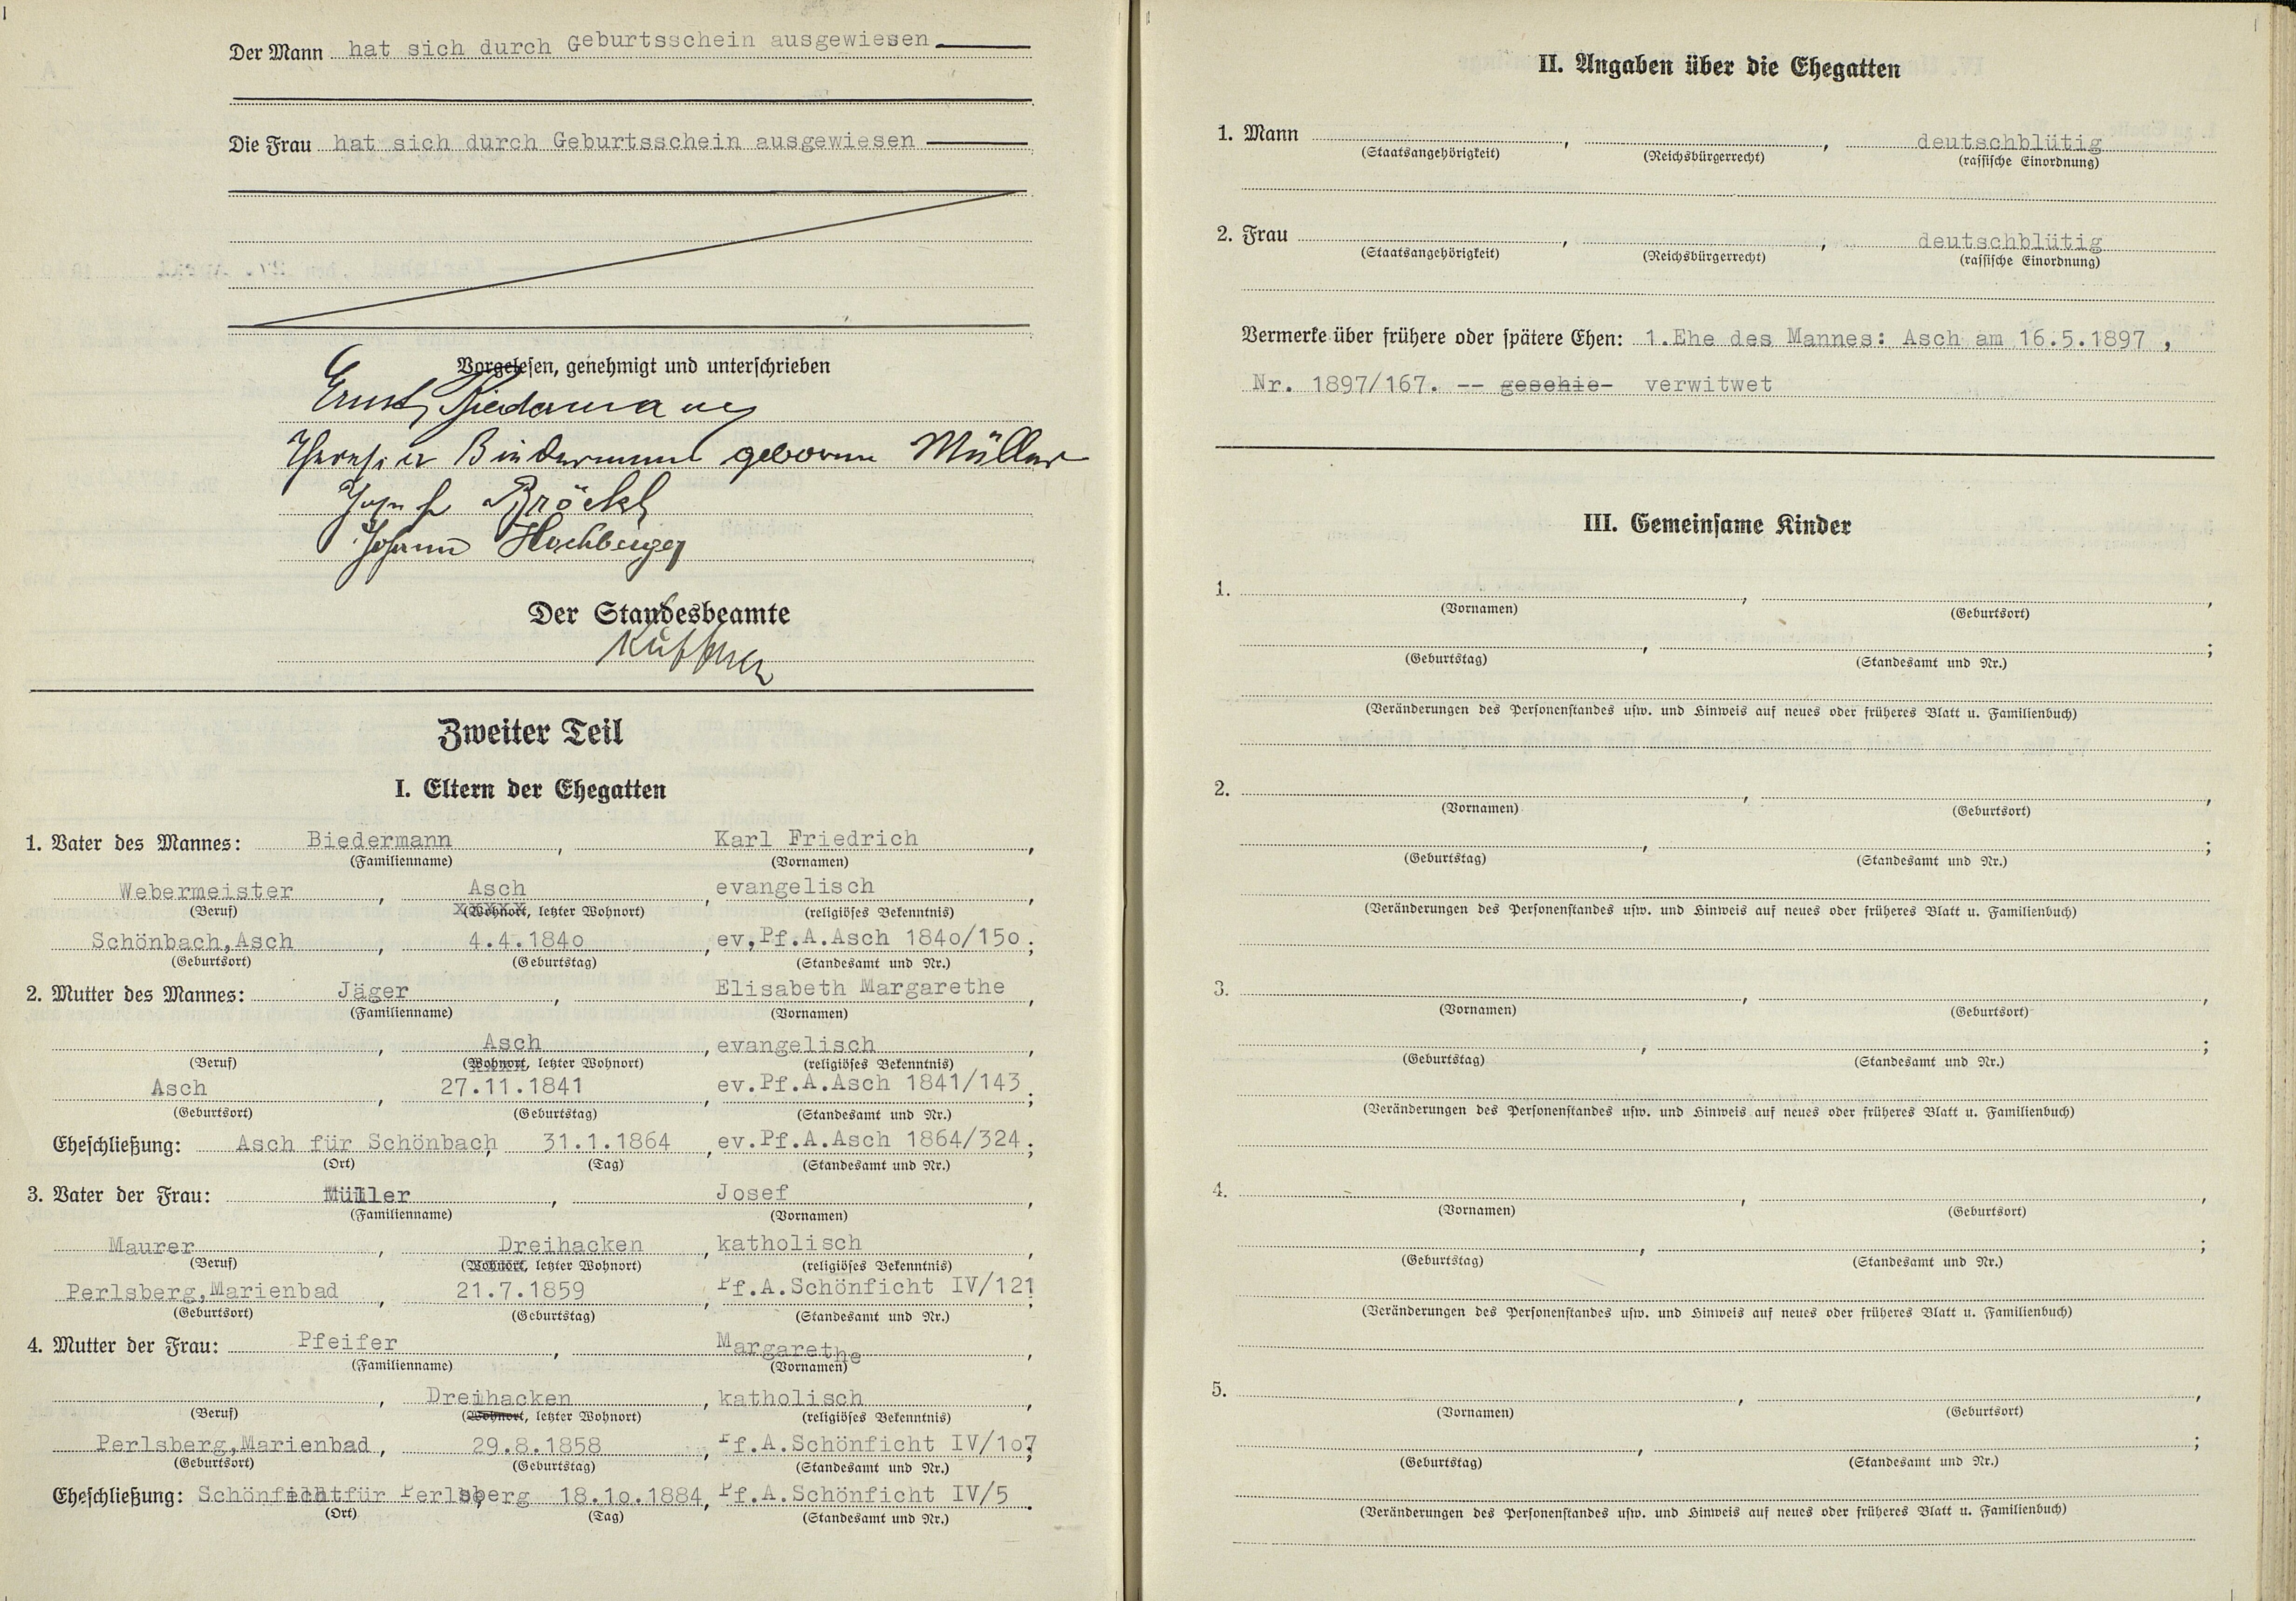 Der Mann hat sich durch Geburtsschein ausgewiesen
Die Frau hat sich durch Geburtsschein ausgewiesen
Vorgelesen, genehmigt und unterschrieben
Ernst Biedermann
Theresia Biedermann geborene Müller
Josef Bröckl
Johann Hochberger
Der Standesbeamte
Küffner
Zweiter Teil
I. Eltern der Ehegatten
1. Vater des Mannes: Biedermann, Karl Friedrich,
(Familienname) (Vornamen)
Webermeister, Asch, evangelisch,
(Beruf) (Wohnort, letzter Wohnort) (religiöses Bekenntnis)
Schönbach,Asch, 4.4.184o, ev,Pf.A.Asch 184o/15o;
(Geburtsort) (Geburtstag) (Standesamt und Nr.)
2. Mutter des Mannes: Jäger, Elisabeth Margarethe,
(Familienname) (Vornamen)
, Asch, evangelisch,
(Beruf) (Wohnort, letzter Wohnort) (religiöses Bekenntnis)
Asch, 27.11.1841, ev.Pf.A.Asch 1841/143;
(Geburtsort) (Geburtstag) (Standesamt und Nr.)
Eheschließung: Asch für Schönbach, 31.1.1864, ev.Pf.A.Asch 1864/324;
(Ort) (Tag) (Standesamt und Nr.)
3. Vater der Frau: Müller, Josef,
(Familienname) (Vornamen)
Maurer, Dreihacken, katholisch,
(Beruf) (Wohnort, letzter Wohnort) (religiöses Bekenntnis)
Perlsberg,Marienbad, 21.7.1859, Pf.A.Schönficht IV/121;
(Geburtsort) (Geburtstag) (Standesamt und Nr.)
4. Mutter der Frau: Pfeifer, Margarethe,
(Familienname) (Vornamen)
, Dreihacken, katholisch,
(Beruf) (Wohnort, letzter Wohnort) (religiöses Bekenntnis)
Perlsberg,Marienbad, 29.8.1858, Pf.A.Schönficht IV/1o7;
(Geburtsort) (Geburtstag) (Standesamt und Nr.)
Eheschließung: Schönficht für Perlsberg, 18.1o.1884, Pf.A.Schönficht IV/5.
(Ort) (Tag) (Standesamt und Nr.)
II. Angaben über die Ehegatten
1. Mann , , deutschblütig
(Staatsangehörigkeit) (Reichsbürgerrecht) (rassische Einordnung)
2. Frau , , deutschblütig
(Staatsangehörigkeit) (Reichsbürgerrecht) (rassische Einordnung)
Vermerke über frühere oder spätere Ehen: 1.Ehe des Mannes: Asch am 16.5.1897 ,
Nr. 1897/167. -- geschie- verwitwet
III. Gemeinsame Kinder
1. , ,
(Vornamen) (Geburtsort)
, ;
(Geburtstag) (Standesamt und Nr.)
(Veränderungen des Personenstandes usw. und Hinweis auf neues oder früheres Blatt u. Familienbuch)
2. , ,
(Vornamen) (Geburtsort)
, ;
(Geburtstag) (Standesamt und Nr.)
(Veränderungen des Personenstandes usw. und Hinweis auf neues oder früheres Blatt u. Familienbuch)
3. , ,
(Vornamen) (Geburtsort)
, ;
(Geburtstag) (Standesamt und Nr.)
(Veränderungen des Personenstandes usw. und Hinweis auf neues oder früheres Blatt u. Familienbuch)
4. , ,
(Vornamen) (Geburtsort)
, ;
(Geburtstag) (Standesamt und Nr.)
(Veränderungen des Personenstandes usw. und Hinweis auf neues oder früheres Blatt u. Familienbuch)
5. , ,
(Vornamen) (Geburtsort)
, ;
(Geburtstag) (Standesamt und Nr.)
(Veränderungen des Personenstandes usw. und Hinweis auf neues oder früheres Blatt u. Familienbuch)